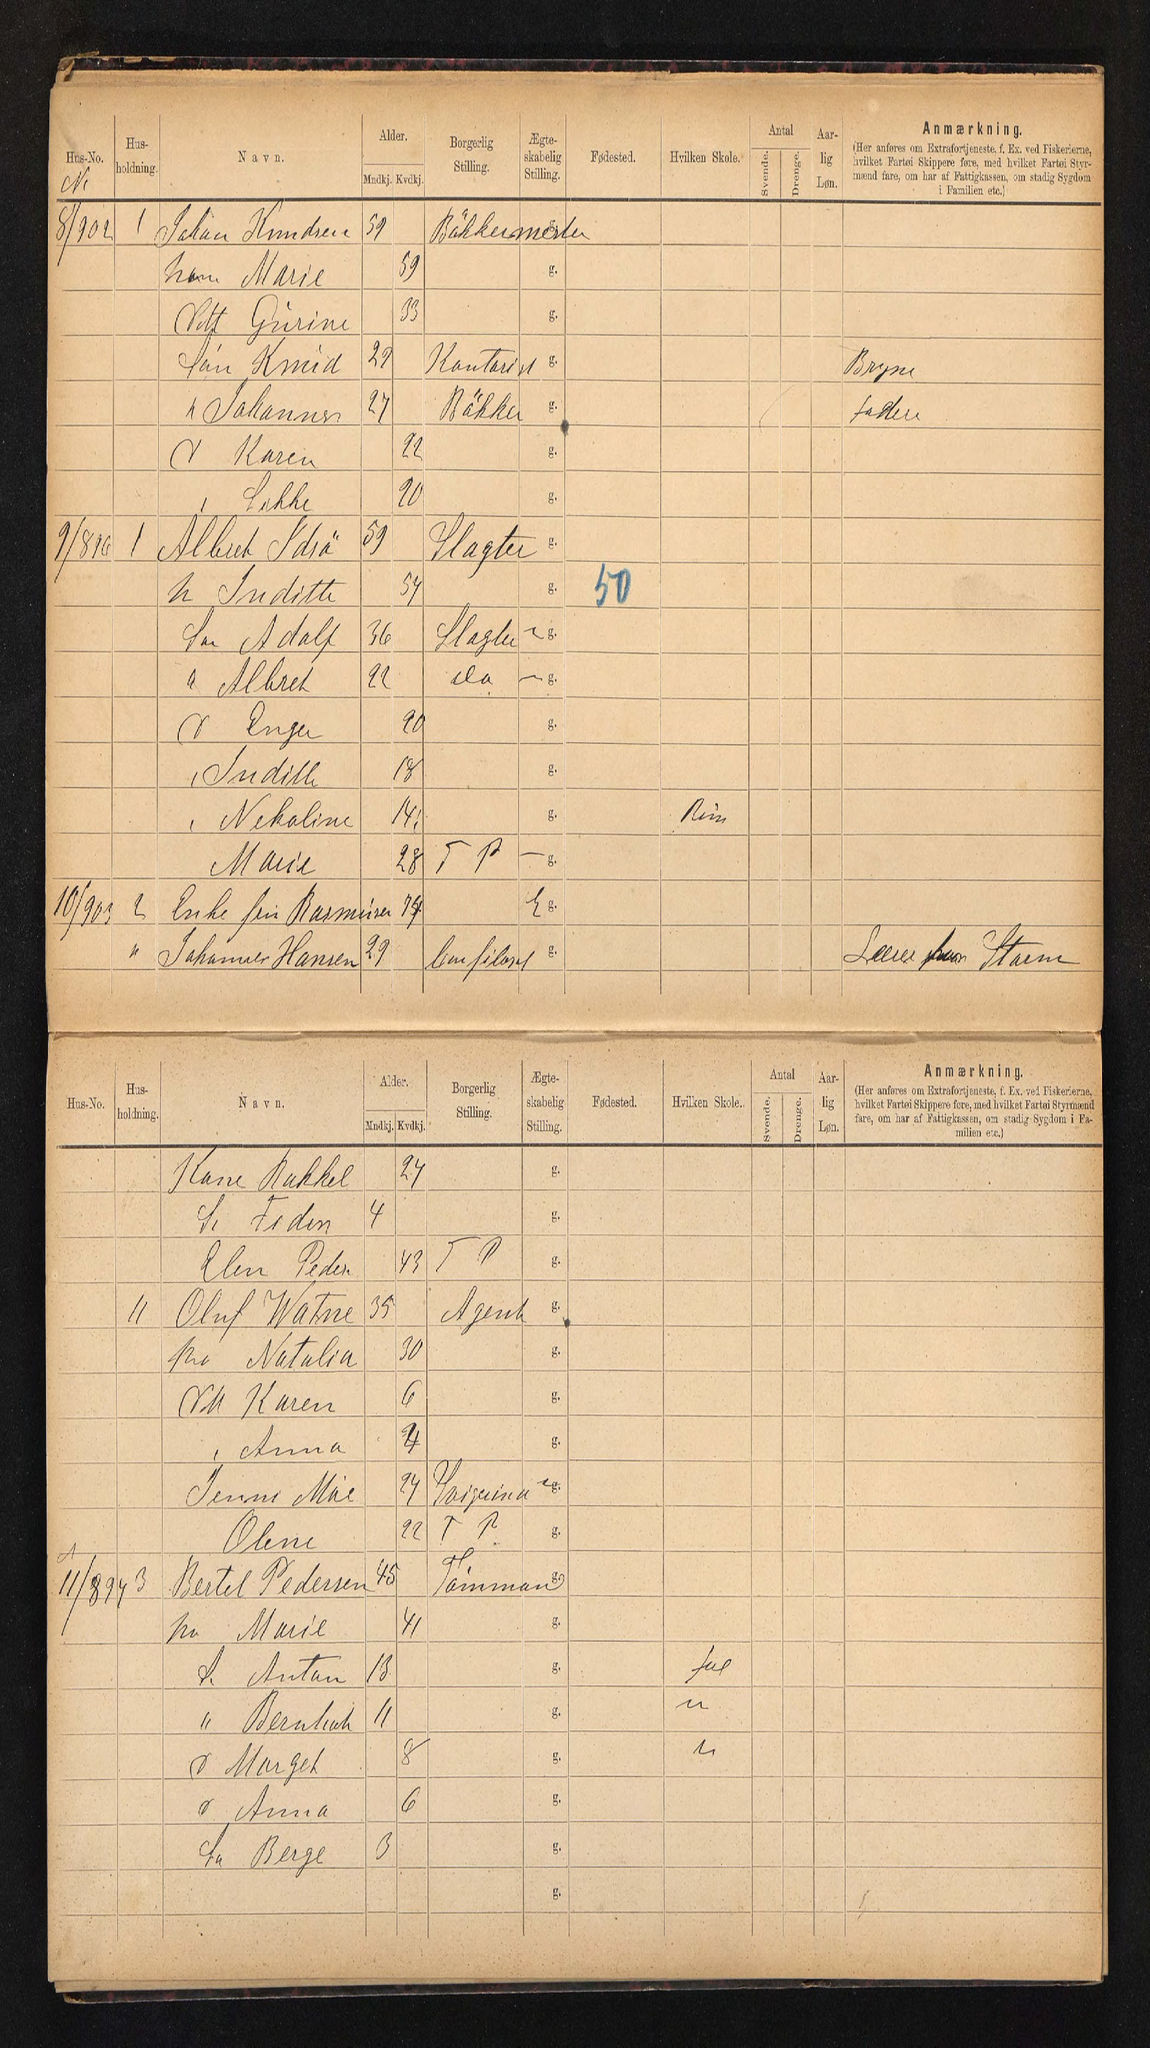 Hus-No. Hus-holdning. Navn. Alder. Mndkj. Kvdkj. Borgerlig Stilling. Ægte-skabelig Stilling. Fødested. Hvilken Skole. Antal Svende. Drenge. Aar-lig Løn. Anmærkning.
(Her anføres om Extrafortjeneste, f. Ex. ved Fiskerierne, hvilket Fartøi Skippere føre, med hvilket Fartøi Styrmænd fare, om har af Fattigkassen, om stadig Sygdom i Familien etc.)
8/902 1 Johan Knudsen 59 Bäkkermester g.
Marie 59 g.
Dtt Gurine 33 g.
Sön Knud 29 Kontorist g. Bryne
" Johannes 27 Bäkker g. faderen
D Karen 22 g.
" 20 g.
9/896 1 Albret Idsö 59 Slagter g.
h Inditte 54 g. 50
Sön Adolf 36 Slagter ~ g.
" Albret 22 do — g.
D Enger 20 g.
" Inditte 18 g.
" Nekoline 14 g.
Marie 28 T P — g.
10/903 2 Enke fru Rasmusen 74 E g.
" Johannes Hansen 29 g. Storm
Hus-No. Hus-holdning. Navn. Alder. Mndkj. Kvdkj. Borgerlig Stilling. Ægte-skabelig Stilling. Fødested. Hvilken Skole. Antal Svende. Drenge. Aar-lig Løn. Anmærkning.
(Her anføres om Extrafortjeneste, f. Ex. ved Fiskerierne, hvilket Fartøi Skippere føre, med hvilket Fartøi Styrmænd fare, om har af Fattigkassen, om stadig Sygdom i Familien etc.)
Kone Rakkel 27 g.
S. 4 g.
Elen Peders 43 T P g.
" Oluf Watne 35 Agent g.
Natalia 30 g.
Dtt Karen 6 g.
" Anna 4 g.
Jenni Moe 27 g.
Olene 22 T P g.
11/894 3 Bertel Pedersen 45 Tömmman g.
Marie 41 g.
S. Anton 13 g.
" Bernhat 11 g. "
D Marget 8 g. "
D Anna 6 g.
Sö Berge 3 g.
g.